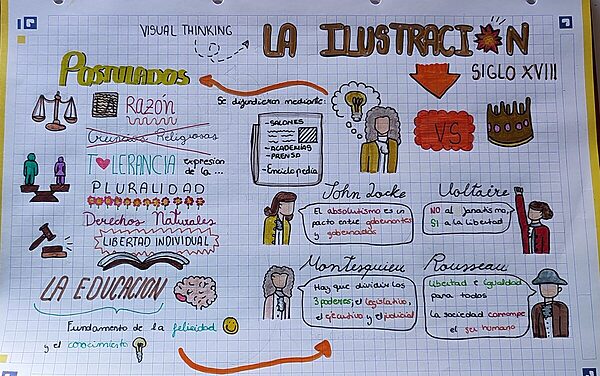 VISUAL THINKING
LA ILUSTRACIÓN
SIGLO XVIII
VS
POSTULADOS
RAZÓN
Creencias Religiosas
TOLERANCIA expresión de la ...
PLURALIDAD
Derechos Naturales
LIBERTAD INDIVIDUAL
LA EDUCACION
Fundamento de la felicidad
y el conocimiento
Se difundieron mediante:
-SALONES
-ACADEMIAS
-PRENSA
-Enciclopedia
John Locke
El absolutismo es un
pacto entre gobernantes
y gobernados
Voltaire
NO al fanatismo,
SI a la libertad
Montesquieu
Hay que dividir los
3 poderes; el legislativo,
el ejecutivo y el judicial
Rousseau
Libertad e igualdad
para todos
La sociedad corrompe
el ser humano